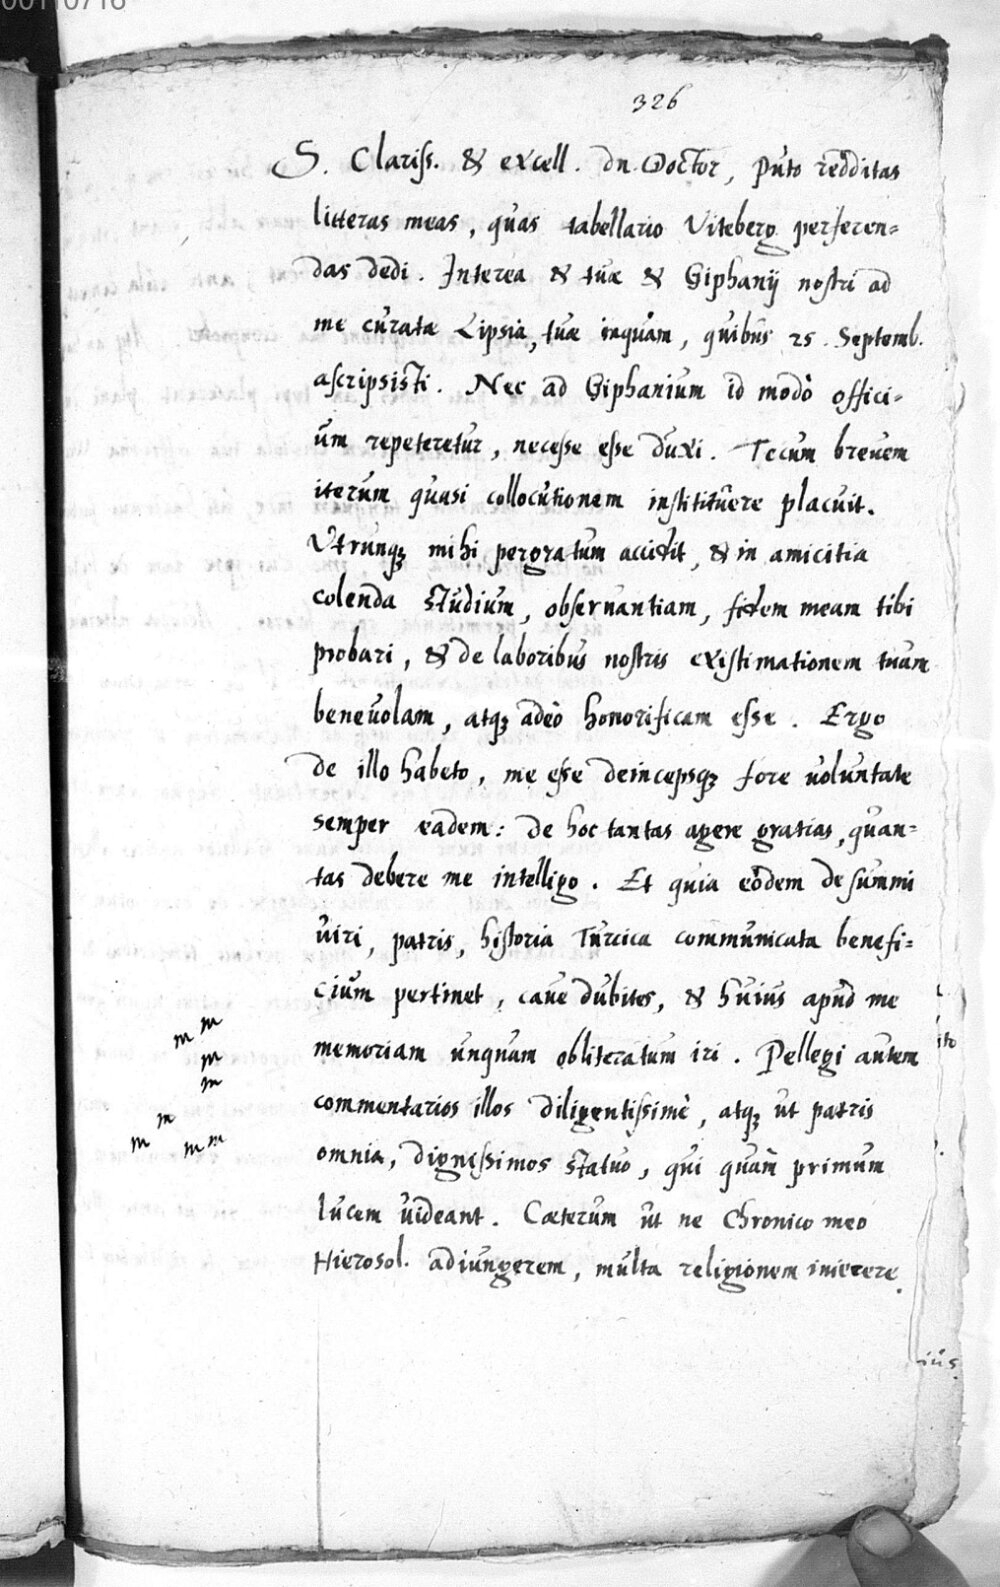 00110716
326
S. Clariss. & excell. dn. Doctor, Puto redditas
litteras meas, quas tabellario Viteberg perferen=
das dedi. Interea & tuæ & Giphanij nostri ad
me curatæ Lipsia, tuæ inquam, quibus 25. Septemb.
ascripsisti. Nec ad Giphanium id modò offici=
um repeteretur, necesse esse duxi. Tecum breuem
iterum quasi collocutionem instituere placuit.
Vtrunq; mihi pergratum accidit, & in amicitia
colenda studium, obseruantiam, fidem meam tibi
probari, & de laboribus nostris existimationem tuam
beneuolam, atq; adeò honorificam esse. Ergo
de illo habeto, me esse deincepsq; fore uoluntate
semper eadem: de hoc tantas agere gratias, quan=
tas debere me intelligo. Et quia eodem de summi
uiri, patris, historia Turcica communicata benefi=
cium pertinet, caue dubites, & huius apud me
memoriam unquam obliteratum iri. Pellegi autem
commentarios illos diligentissimè, atq; ut patris
omnia, dignissimos statuo, qui quam primum
lucem uideant. Cæterum ut ne Chronico meo
Hierosol. adiungerem, multa religionem iniecere.
m m
m
m
m
m m m
ito
ius